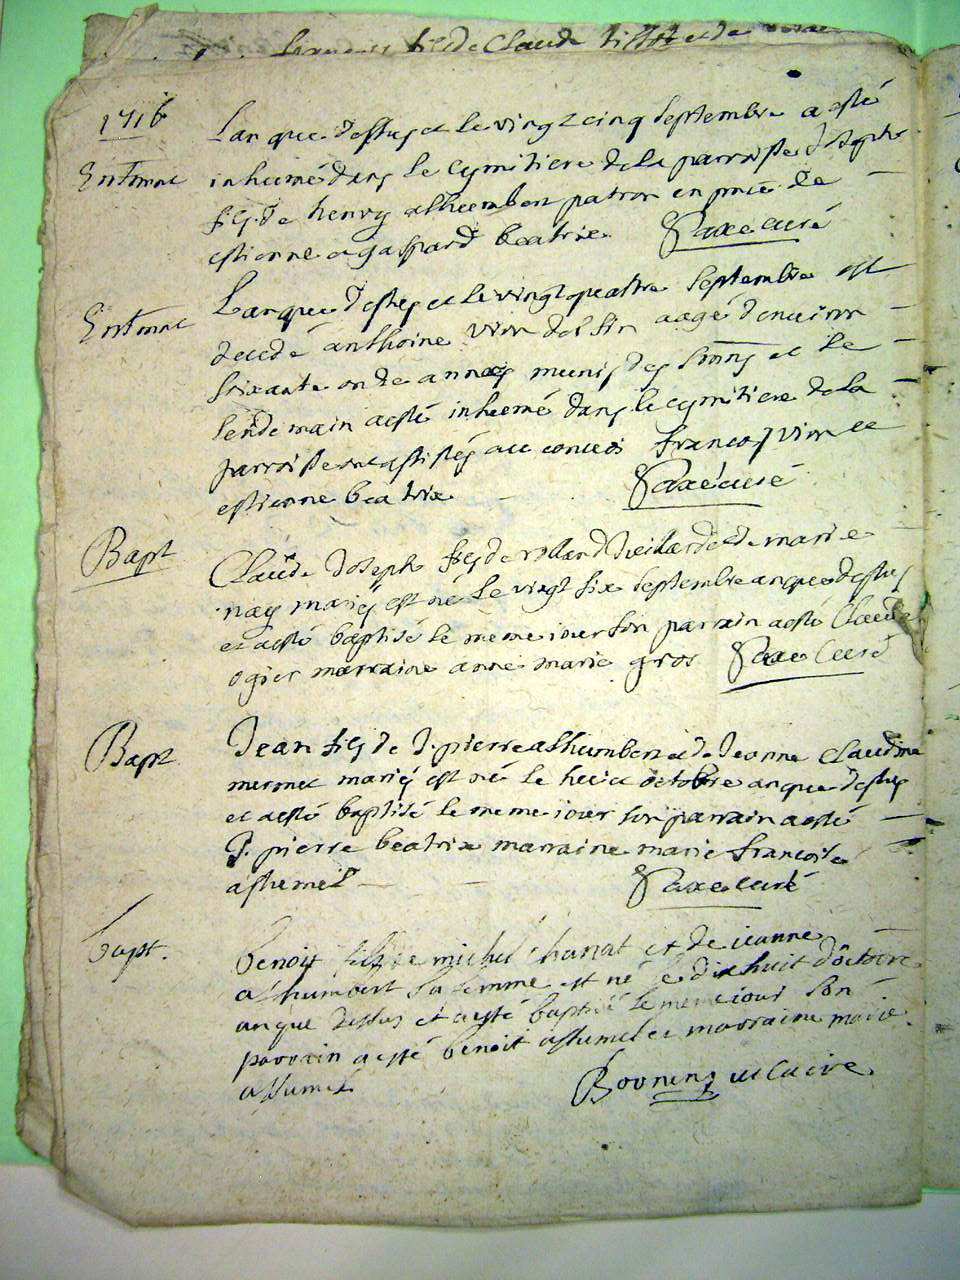 fils de Claude
1716
L'an que dessus et le vingt cinq septembre a esté
Enterment
inhumé dans le cymitiere de la parroisse Joseph
fils de henry asthumbert patron en pnce de
estienne et gaspard beatrix Saxe curé
L'an que dessus et le vingt quatre septembre est
Enterment
decedé anthoine aagé denviron
soixante onze années munis des Smts et le
lendemain a esté inhumé dans le cymitiere de la
parroisse ont assistés au convoi françois et
estienne beatrix Saxe curé
Bapt
Claude Joseph fils de rolland et de marie
mariés est né le vingt six septembre an que dessus
et a esté baptisé le meme iour son parrain a esté Claude
ogier marraine anne marie gros Saxe Curé
Bapt
Jean fils de J. pierre asthumbert et de Jeanne Claudine
mermet mariés est né le huict octobre an que dessus
et a esté baptisé le meme iour son parrain a esté
J. pierre beatrix marraine marie françoise
Saxe curé
bapt.
benoit fils de michel chanat et de ieanne
asthumbert sa femme est né le dix huit d'octobre
an que dessus et a esté baptisé le meme iour son
parrain a esté benoit et marraine marie
vicaire